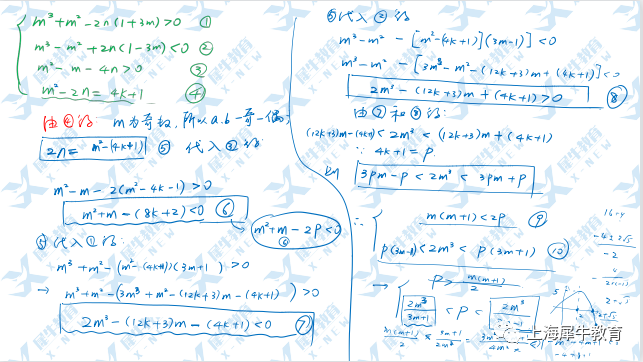 m³+m²-2n(1+3m)>0 ①
m³-m²+2n(1-3m)<0 ②
m²-m-4n>0 ③
m²-2n=4k+1 ④
由④的 m为奇数,所以a.b一奇一偶,
2n=m²-(4k+1) ⑤ 代入③的:
m²-m-2(m²-4k-1)>0
m²+m-(8k+2)<0 ⑥
m²+m-2p<0
⑥
⑤代入①的
m³+m²-(m²-(4k+1))(3m+1)>0
→ m³+m²-(3m³+m²-(12k+3)m-(4k+1))>0
2m³-(12k+3)m-(4k+1)<0 ⑦
⑤代入②的
m³-m²-[m²-(4k+1)](3m-1)<0
m³-m²-[3m³-m²-(12k+3)m+(4k+1)]<0
2m³-(12k+3)m+(4k+1)>0 ⑧
由⑦和⑧的:
(12k+3)m-(4k+1)<2m³<(12k+3)m+(4k+1)
∵ 4k+1=p
则 3pm-p<2m³<3pm+p
∴ m(m+1)<2p ⑨
p(3m-1)<2m³<p(3m+1) ⑩
→ p>m(m+1)/2
2m³/(3m+1)<p<2m³
上海犀牛教育
犀牛教育
X·NEW